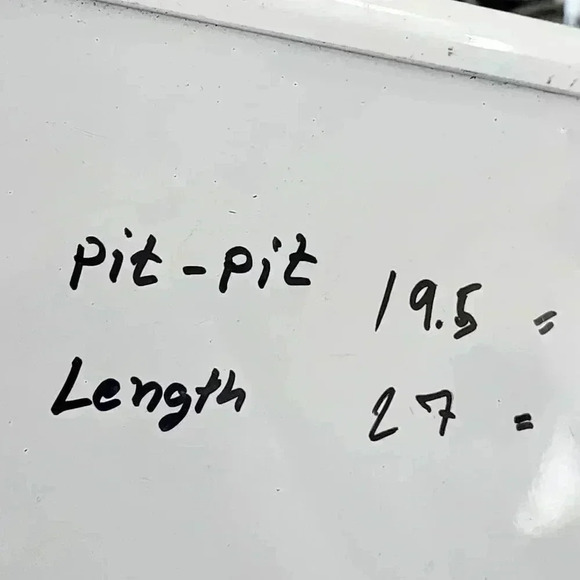 Pit-Pit 19.5 =
Length 27 =